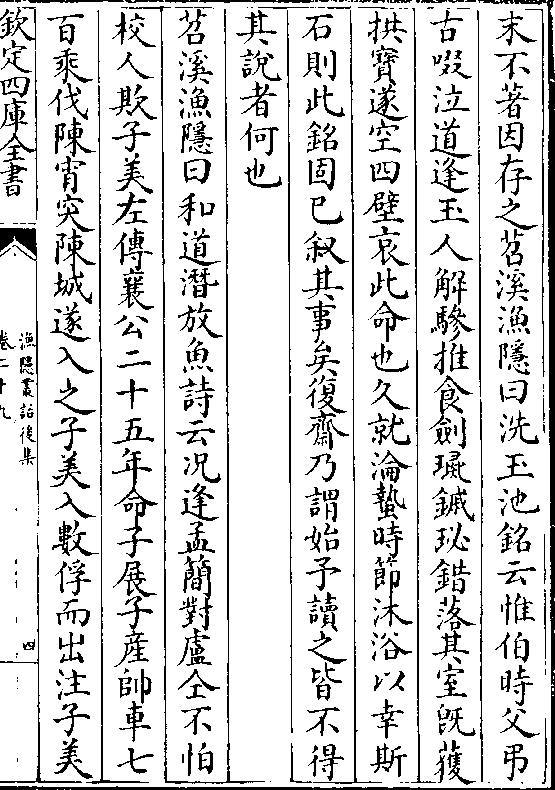 末不著因存之苕溪漁隱曰洗玉池銘云惟伯時父弔
古啜泣道逢玉人解驂推食劍璏鏚珌錯落其室既獲
拱寶遂空四壁哀此命也久就淪蟄時節沐浴以幸斯
石則此銘固已叙其事矣復齋乃謂始予讀之皆不得
其說者何也
苕溪漁隱曰和道潛放魚詩云况逢孟簡對盧仝不怕
校人欺子美左傳襄公二十五年命子展子產帥車七
百乘伐陳宵突陳城遂入之子美入數俘而出注子美
欽定四庫全書
漁隱叢話後集
卷二十九
四